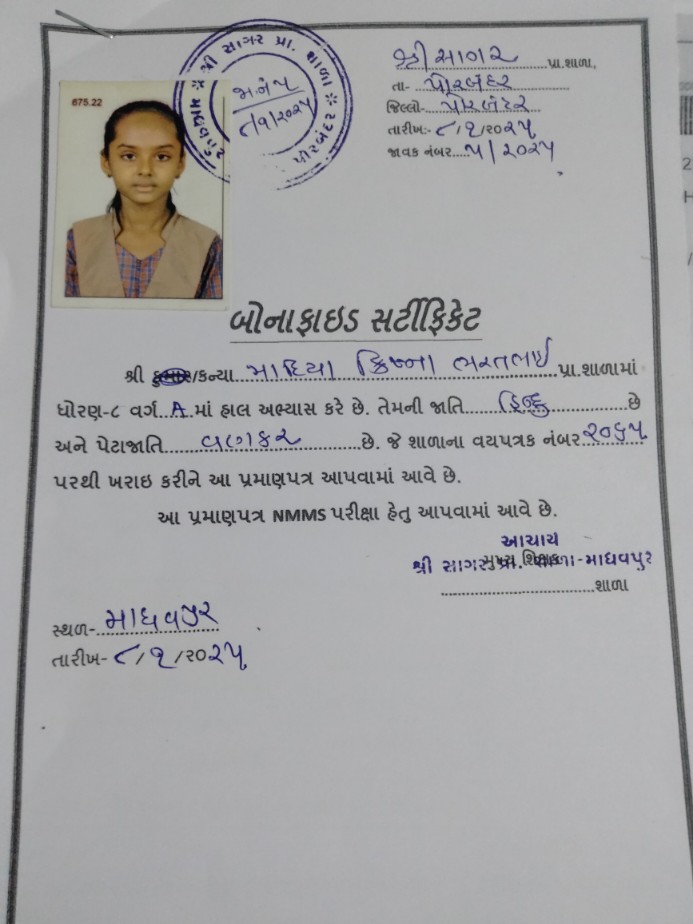 શ્રી સાગર પ્રા. શાળા
માધવપુર
પોરબંદર
જા.નં.૫
૮/૧/૨૦૨૫
675.22
શ્રી સાગર પ્રા.શાળા,
તા- પોરબંદર
જિલ્લો- પોરબંદર
તારીખ:- ૮/૧/૨૦૨૫
જાવક નંબર....૫/૨૦૨૫
બોનાફાઇડ સર્ટીફિકેટ
શ્રી કુમાર/કન્યા માદિયા ક્રિષ્ના ભરતભાઇ પ્રા.શાળામાં
ધોરણ-૮ વર્ગ..A.માં હાલ અભ્યાસ કરે છે. તેમની જાતિ હિન્દુ છે
અને પેટાજાતિ વણકર છે. જે શાળાના વયપત્રક નંબર ૨૦૬૫
પરથી ખરાઇ કરીને આ પ્રમાણપત્ર આપવામાં આવે છે.
આ પ્રમાણપત્ર NMMS પરીક્ષા હેતુ આપવામાં આવે છે.
આચાર્ય
મુખ્ય શિક્ષક
શ્રી સાગર પ્રા. શાળા-માધવપુર
શાળા
સ્થળ- માધવપુર
તારીખ- ૮/૧/૨૦૨૫